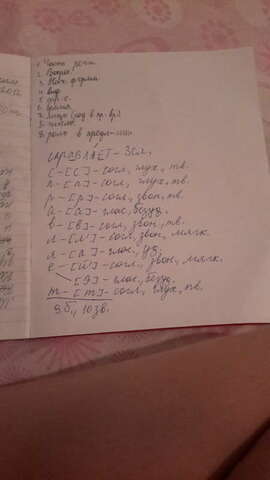 1. Часть речи
2. Вопрос
3. Нач. форма
4. вид
5. спр-е.
6. время
7. лицо (род в пр. вр)
8. число
9. роль в предл-нии
справляет - 3сл.
с - [с] - согл, глух, тв.
п - [п] - согл, глух, тв.
р - [р] - согл, звон, тв.
а - [а] - глас, безуд.
в - [в] - согл, звон, тв.
л - [л'] - согл, звон, мягк.
я - [а] - глас, уд.
е - [й'] - согл, звон, мягк.
[э] - глас, безуд.
т - [т] - согл, глух, тв.
9б, 10зв.